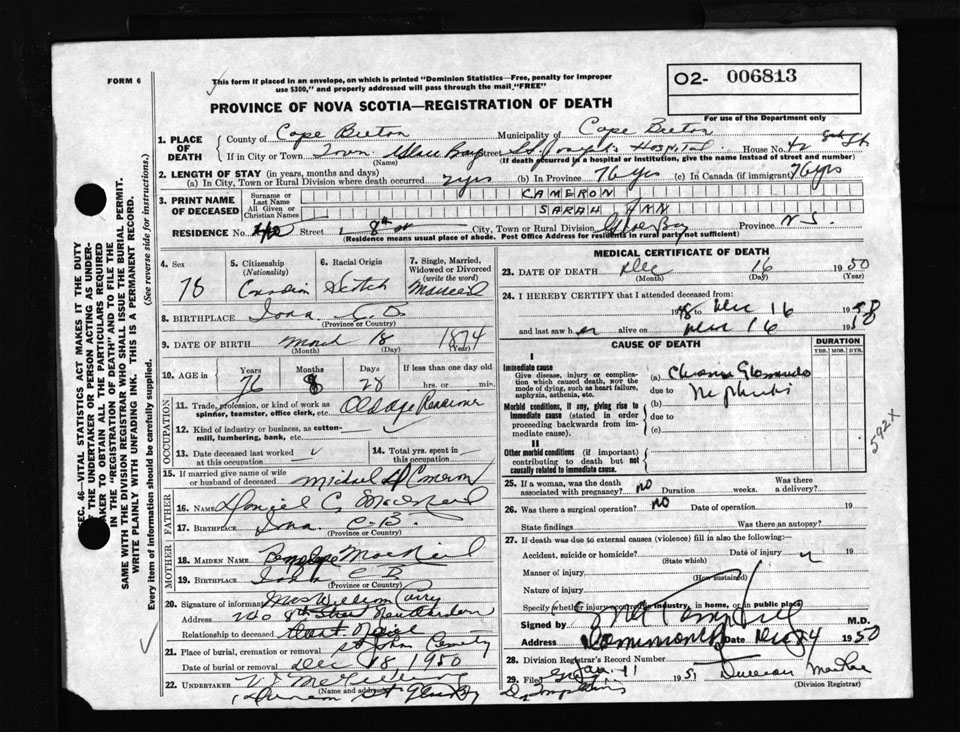 FORM 6
This form if placed in an envelope, on which is printed "Dominion Statistics—Free, penalty for improper
use $300," and properly addressed will pass through the mail "FREE"
O2- 006813
For use of the Department only
PROVINCE OF NOVA SCOTIA—REGISTRATION OF DEATH
1. PLACE OF DEATH
County of Cape Breton Municipality of Cape Breton
If in City or Town Town Glace Bay Street St. Joseph's Hospital House No. 42
(Name) (If death occurred in a hospital or institution, give the name instead of street and number)
2. LENGTH OF STAY (in years, months and days)
(a) In City, Town or Rural Division where death occurred 2 yrs (b) In Province 76 yrs (c) In Canada (if immigrant) 76 yrs
3. PRINT NAME OF DECEASED
Surname or Last Name CAMERON
All Given or Christian Names SARAH ANN
RESIDENCE No. Street 8th st City, Town or Rural Division Glace Bay Province N S.
(Residence means usual place of abode. Post Office Address for residents in rural parts not sufficient)
4. Sex
5. Citizenship (Nationality) Canadian
6. Racial Origin Scotch
7. Single, Married, Widowed or Divorced (write the word) Married
8. BIRTHPLACE Iona C. B
(Province or Country)
9. DATE OF BIRTH March 18 1874
(Month) (Day) (Year)
10. AGE in Years 76 Months 8 Days 28 If less than one day old hrs. or min.
OCCUPATION
11. Trade, profession, or kind of work as spinner, teamster, office clerk, etc. Old age Pensioner
12. Kind of industry or business, as cotton-mill, lumbering, bank, etc.
13. Date deceased last worked at this occupation
14. Total yrs. spent in this occupation
15. If married give name of wife or husband of deceased Michael D Cameron
FATHER
16. NAME Daniel C MacNeil
17. BIRTHPLACE Iona C. B.
(Province or Country)
MOTHER
18. MAIDEN NAME Penelope MacNeil
19. BIRTHPLACE Iona C B
(Province or Country)
20. Signature of informant Mrs William Curry
Address 240 8th Street New Aberdeen
Relationship to deceased
21. Place of burial, cremation or removal St John Cemetery
Date of burial or removal Dec 18 1950
22. UNDERTAKER V. J. McGillivray
(Name and address)
MEDICAL CERTIFICATE OF DEATH
23. DATE OF DEATH Dec 16 1950
(Month) (Day) (Year)
24. I HEREBY CERTIFY that I attended deceased from:
1948 to Dec 16 1950
and last saw her alive on Dec 16 1950
CAUSE OF DEATH
DURATION
YRS. MOS. DYS.
I
Immediate cause
Give disease, injury or complication which caused death, NOT the mode of dying, such as heart failure, asphyxia, asthenia, etc.
(a) Chronic Glomerulo
due to Nephritis
Morbid conditions, if any, giving rise to immediate cause (stated in order proceeding backwards from immediate cause).
(b)
due to
(c)
592X
II
Other morbid conditions (if important) contributing to death but not causally related to immediate cause.
25. If a woman, was the death associated with pregnancy? no Duration weeks. Was there a delivery?
26. Was there a surgical operation? no Date of operation 19
State findings Was there an autopsy?
27. If death was due to external causes (violence) fill in also the following:
Accident, suicide or homicide? Date of injury 19
(State which)
Manner of injury
(How sustained)
Nature of injury
Specify whether injury occurred in industry, in home, or in public place
Signed by M.D.
Address Dominion Date Dec 24 1950
28. Division Registrar's Record Number
29. Filed Jan. 11 1951 Duncan MacRae
(Division Registrar)
SEC. 46—VITAL STATISTICS ACT MAKES IT THE DUTY
OF THE UNDERTAKER OR PERSON ACTING AS UNDERTAKER TO OBTAIN ALL THE PARTICULARS REQUIRED
IN THE "REGISTRATION OF DEATH" AND TO FILE THE
SAME WITH THE DIVISION REGISTRAR WHO SHALL ISSUE THE BURIAL PERMIT.
WRITE PLAINLY WITH UNFADING INK. THIS IS A PERMANENT RECORD.
Every item of information should be carefully supplied. (See reverse side for instructions.)